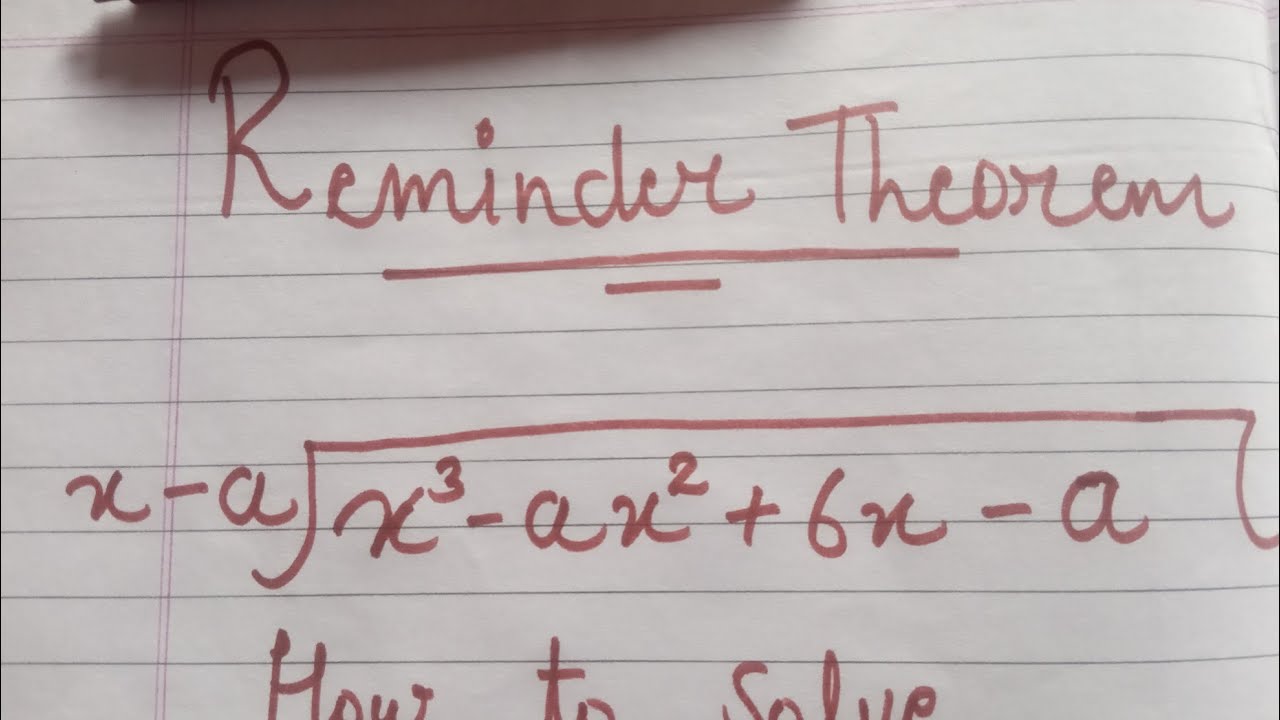 Reminder Theorem
x - a) x³ - ax² + 6x - a (
How to Solve